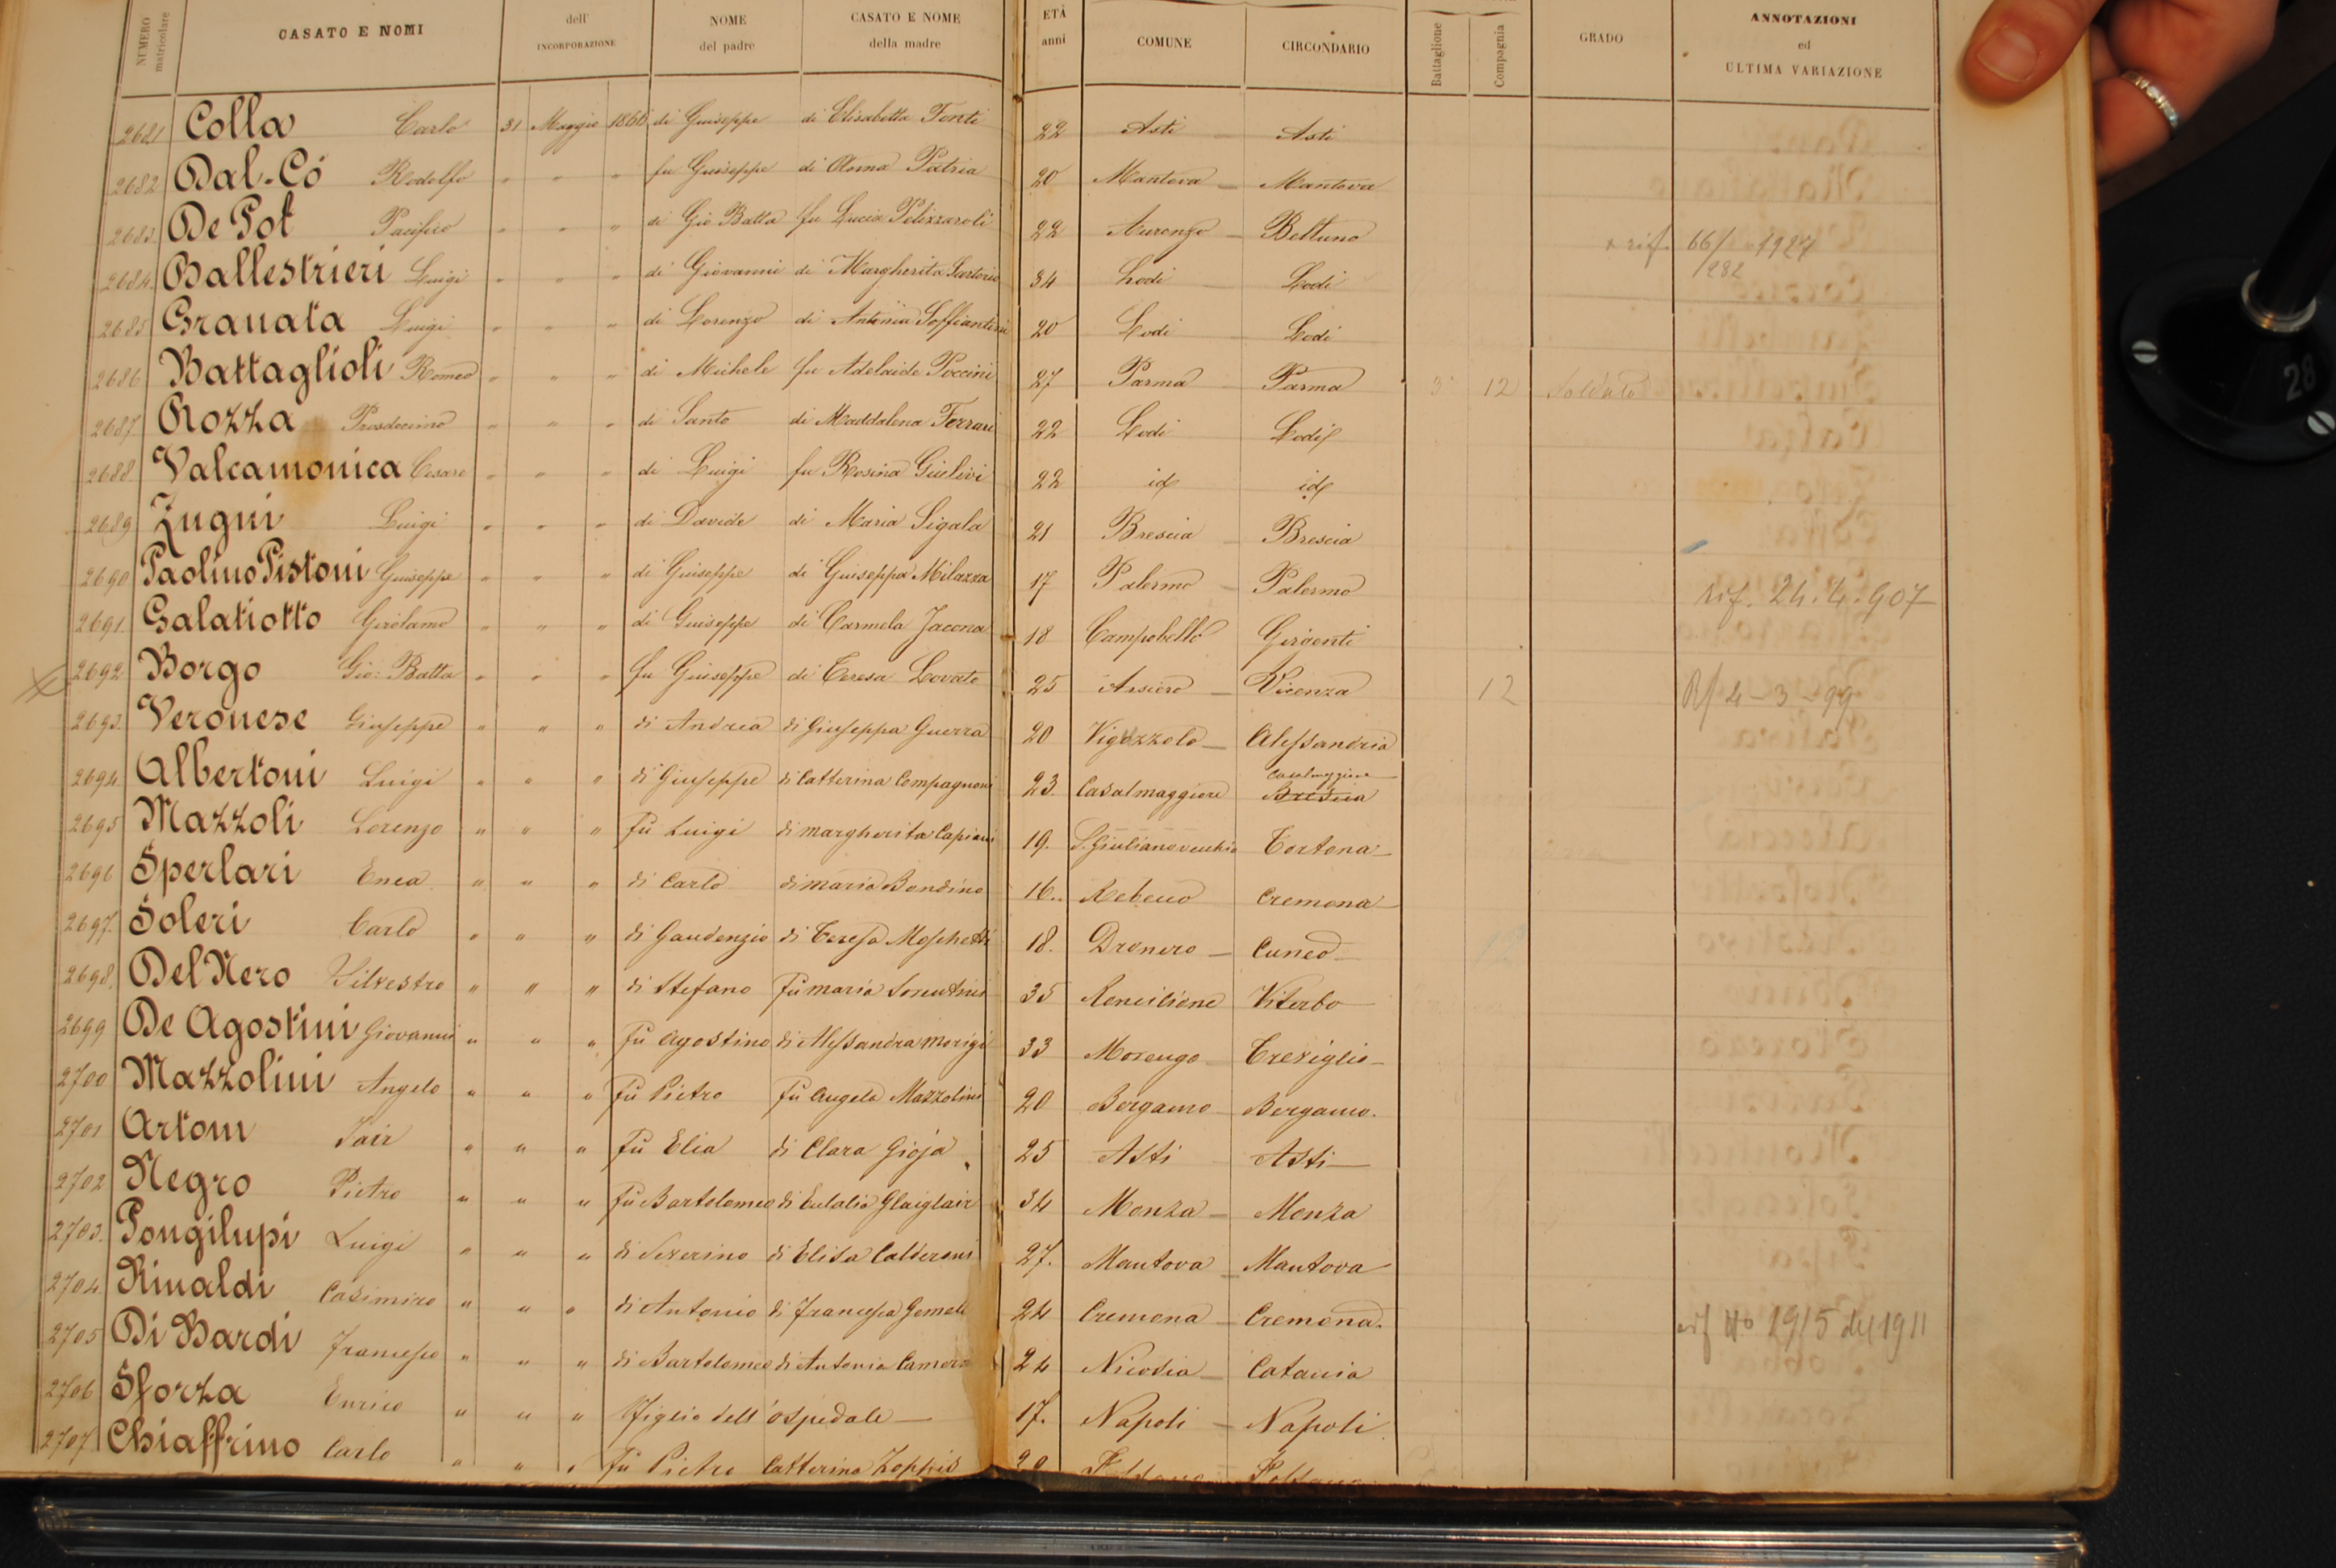 NUMERO matricolare CASATO E NOMI dell' INCORPORAZIONE NOME del padre CASATO E NOME della madre ETÀ anni COMUNE CIRCONDARIO Battaglione Compagnia GRADO ANNOTAZIONI ed ULTIMA VARIAZIONE
2681 Colla Carlo 31 Maggio 1866 di Giuseppe di Elisabetta Fonti 22 Asti Asti
2682 Dal-Có Rodolfo " " " fu Giuseppe di Patria 20 Mantova - Mantova
2683. De Pol Pacifico " " " di Gio Batta fu Lucia Pelizzaroli 22 Auronzo - Belluno rif 66/282 1927
2684. Ballestrieri Luigi " " " di Giovanni di Margherita Sartorio 34 Lodi Lodi
2685 Granata Luigi " " " di Lorenzo di Antonia Soffiantini 20 Lodi Lodi
2686 Battaglioli Romeo " " " di Michele fu Adelaide Poccini 27 Parma Parma 3 12 Soldato
2687. Rozza Prosdocimo " " " di Santo di Maddalena Ferrari 22 Lodi Lodi
2688. Valcamonica Cesare " " " di Luigi fu Rosina Giulivi 22 id id
2689 Zugni Luigi " " " di Davide di Maria Sigala 21 Brescia - Brescia
2690 Paolino Pistoni Giuseppe " " " di Giuseppe di Giuseppa Milazza 17 Palermo - Palermo rif. 24.4.907
2691. Galatiotto Girolamo " " " di Giuseppe di Carmela Jacona 18 Campobello Girgenti
2692 Borgo Gio: Batta " " " fu Giuseppe di Teresa Lovato 25 Arsiero - Vicenza 12 Rf 4-3-99
2693. Veronese Giuseppe " " " di Andrea di Giuseppa Guerra 20 Vigozzolo - Alessandria
2694 Albertoni Luigi " " " di Giuseppe di Catterina Compagnoni 23. Casalmaggiore Casalmaggiore Brescia
2695 Mazzoli Lorenzo " " " fu Luigi di Margherita Capiani 19. S. Giuliano vecchio Tortona -
2696 Sperlari Enea " " " di Carlo di Maria Bondino 16.. Rebecco Cremona -
2697. Soleri Carlo " " " di Gaudenzio di Teresa Moschetti 18. Dronero - Cuneo -
2698. Del Nero Silvestro " " " di Stefano fu Maria 35 Roncilione Viterbo -
2699 De Agostini Giovanni " " " fu Agostino di Alessandra Morigi 33 Morengo - Treviglio -
2700 Mazzolini Angelo " " " fu Pietro fu Angela Mazzolini 20 Bergamo - Bergamo.
2701 Artom Jair " " " fu Elia di Clara Gioja 25 Asti Asti -
2702 Negro Pietro " " " fu Bartolomeo di Eulalia 34 Monza - Monza
2703. Pongilupi Luigi " " " di Severino di Elisa Calderoni 27. Mantova - Mantova
2704. Rinaldi Casimiro " " " di Antonio di Francesca Gemell 24 Cremona - Cremona.
2705 Di Bardi Francesco " " " di Bartolomeo di Antonia Camera 24 Nicosia - Catania rif No 1915 del 1911
2706 Sforza Enrico " " " figlio dell'ospedale - 17. Napoli - Napoli
2707 Chiaffrino Carlo " " " fu Pietro Catterina Zoppis
28